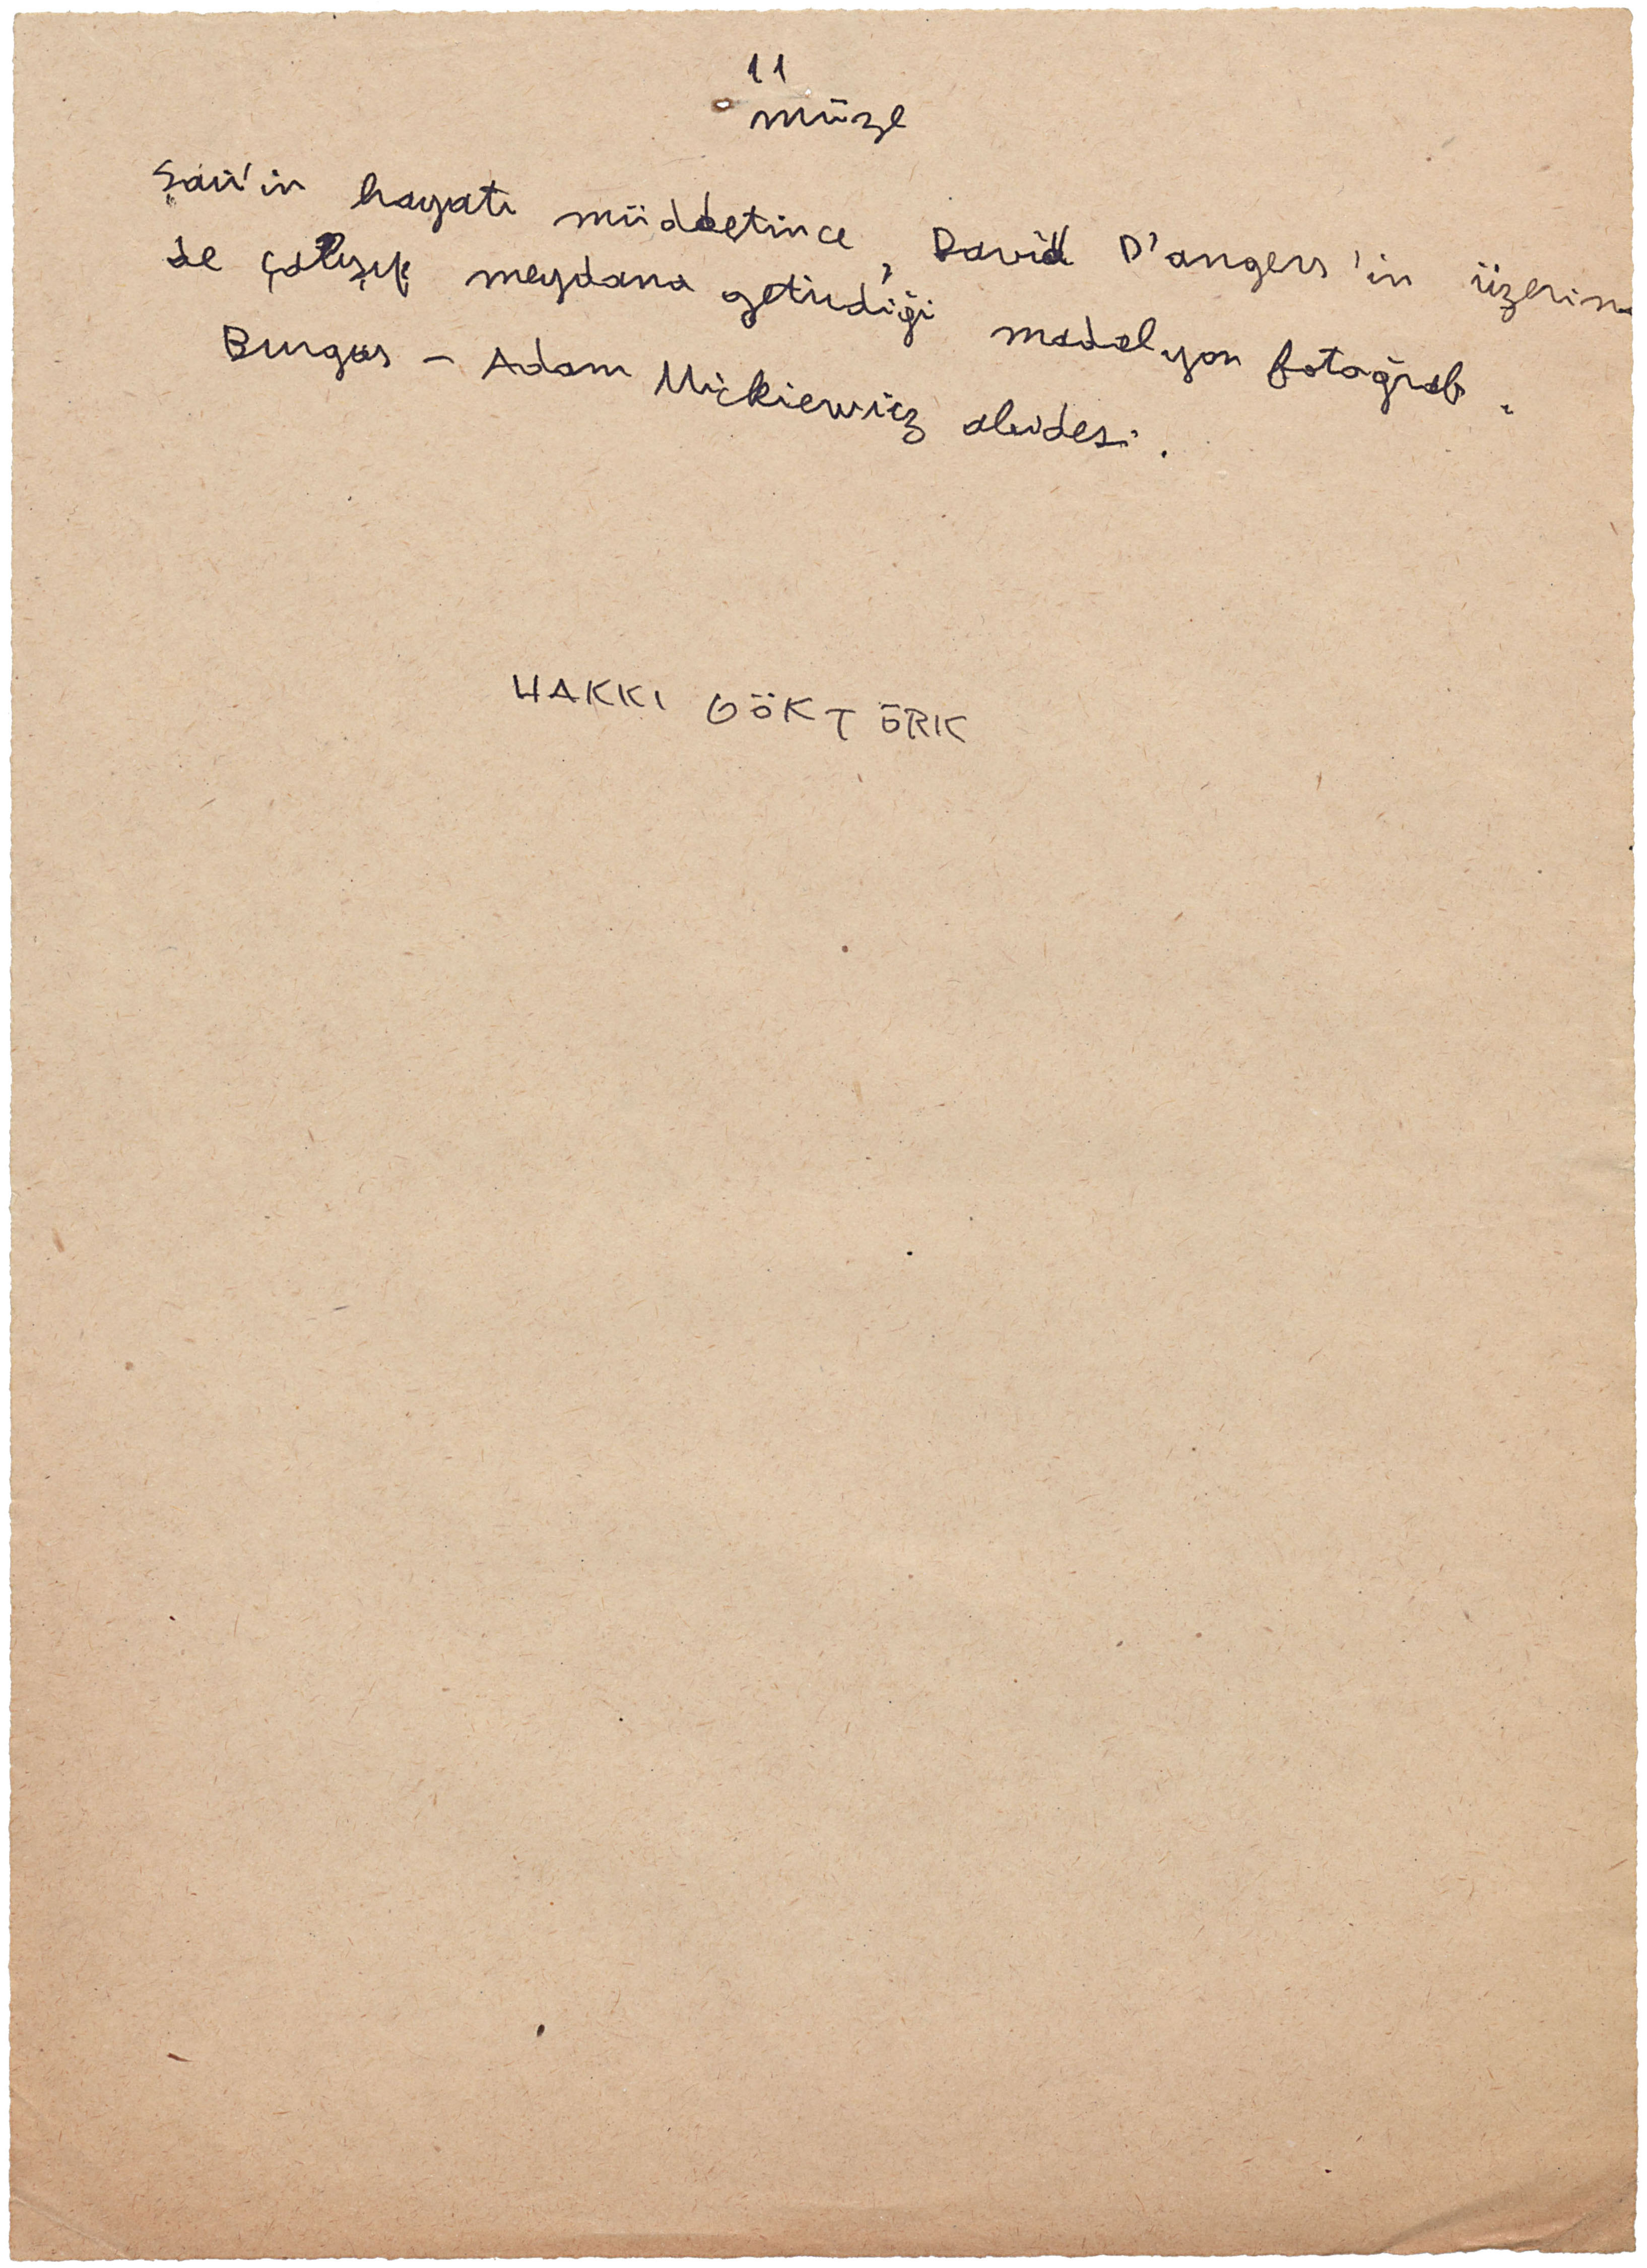 11
müze
Şair'in hayatı müddetince, David D'angers'in üzerin
de çalışıp meydana getirdiği madalyon fotoğrafı.
Burgas - Adam Mickiewicz abidesi.
HAKKI GÖKTÜRK